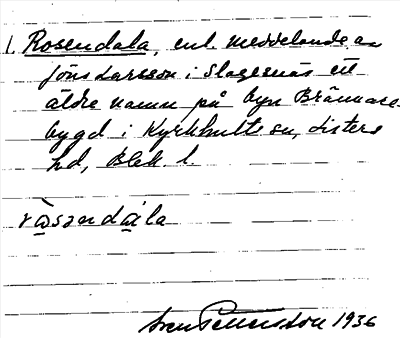 1. Rosendala, enl. meddelande av
Jöns Larsson i Slagesnäs ett
äldre namn på byn Brännare-
bygd i Kyrkhults sn, Listers
hd, Blek. l.
ràsəndàla
Sven Pettersson 1936